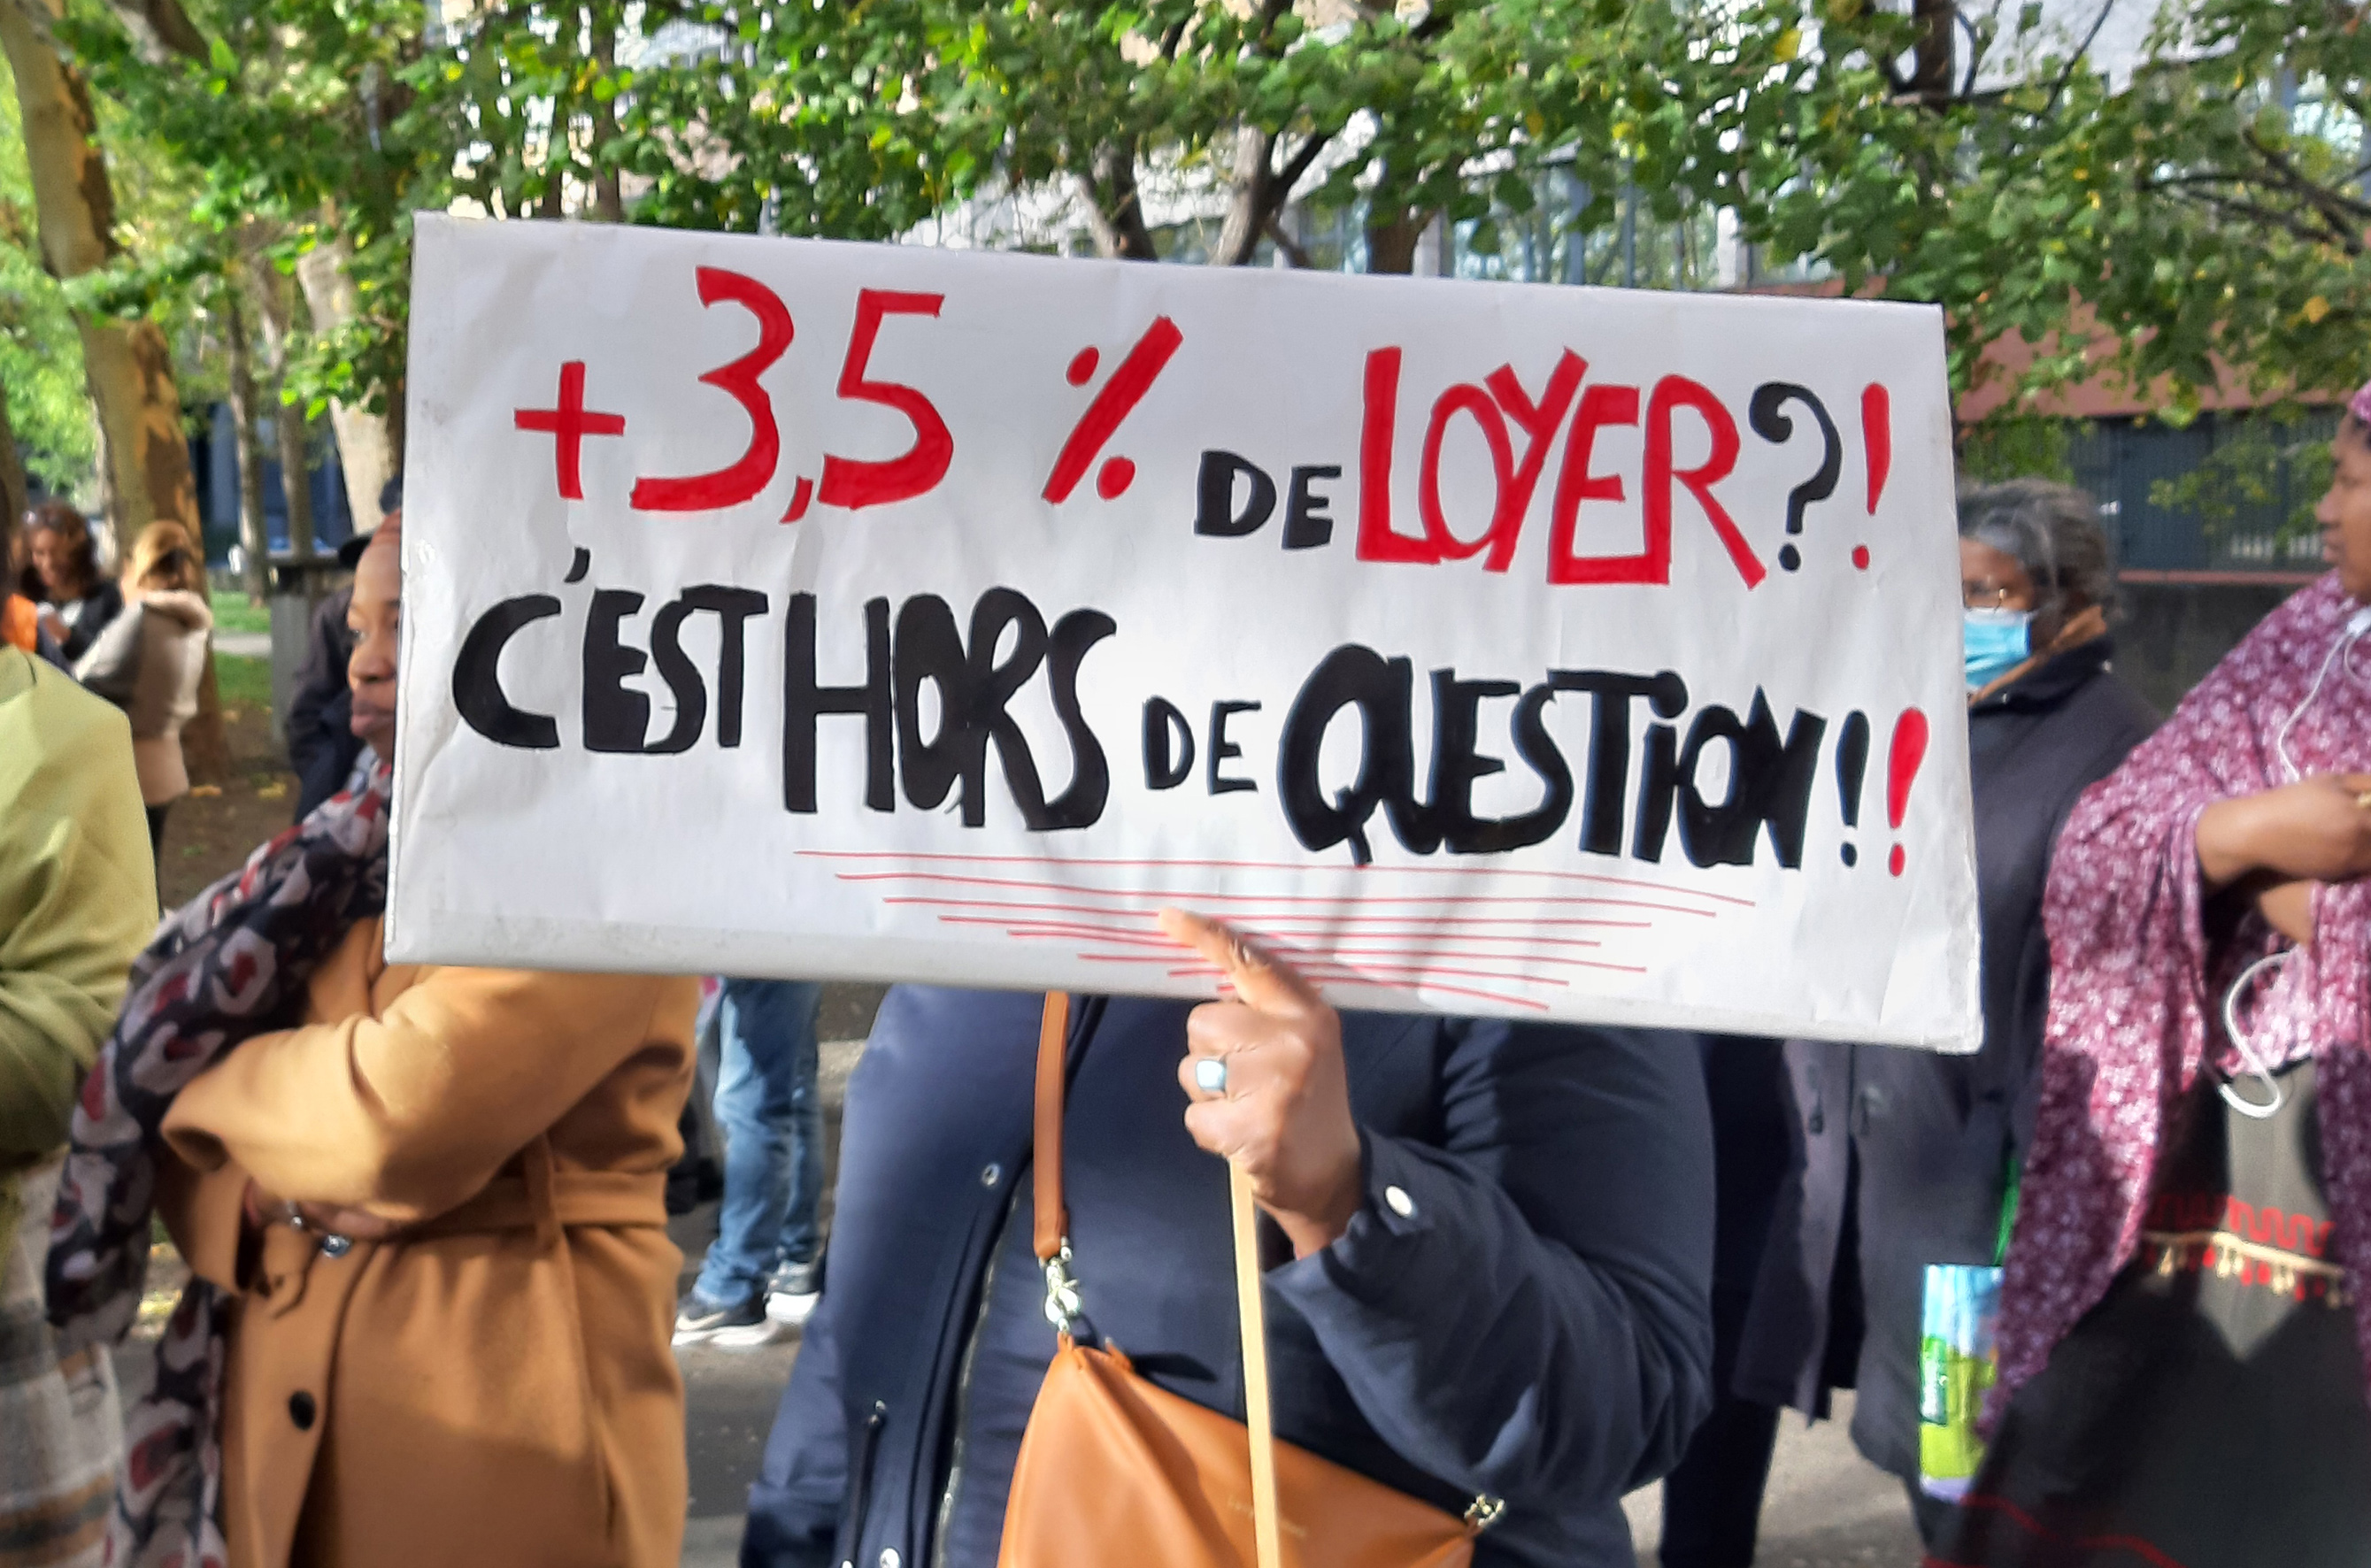 +3,5 % DE LOYER?!
C'EST HORS DE QUESTION!!